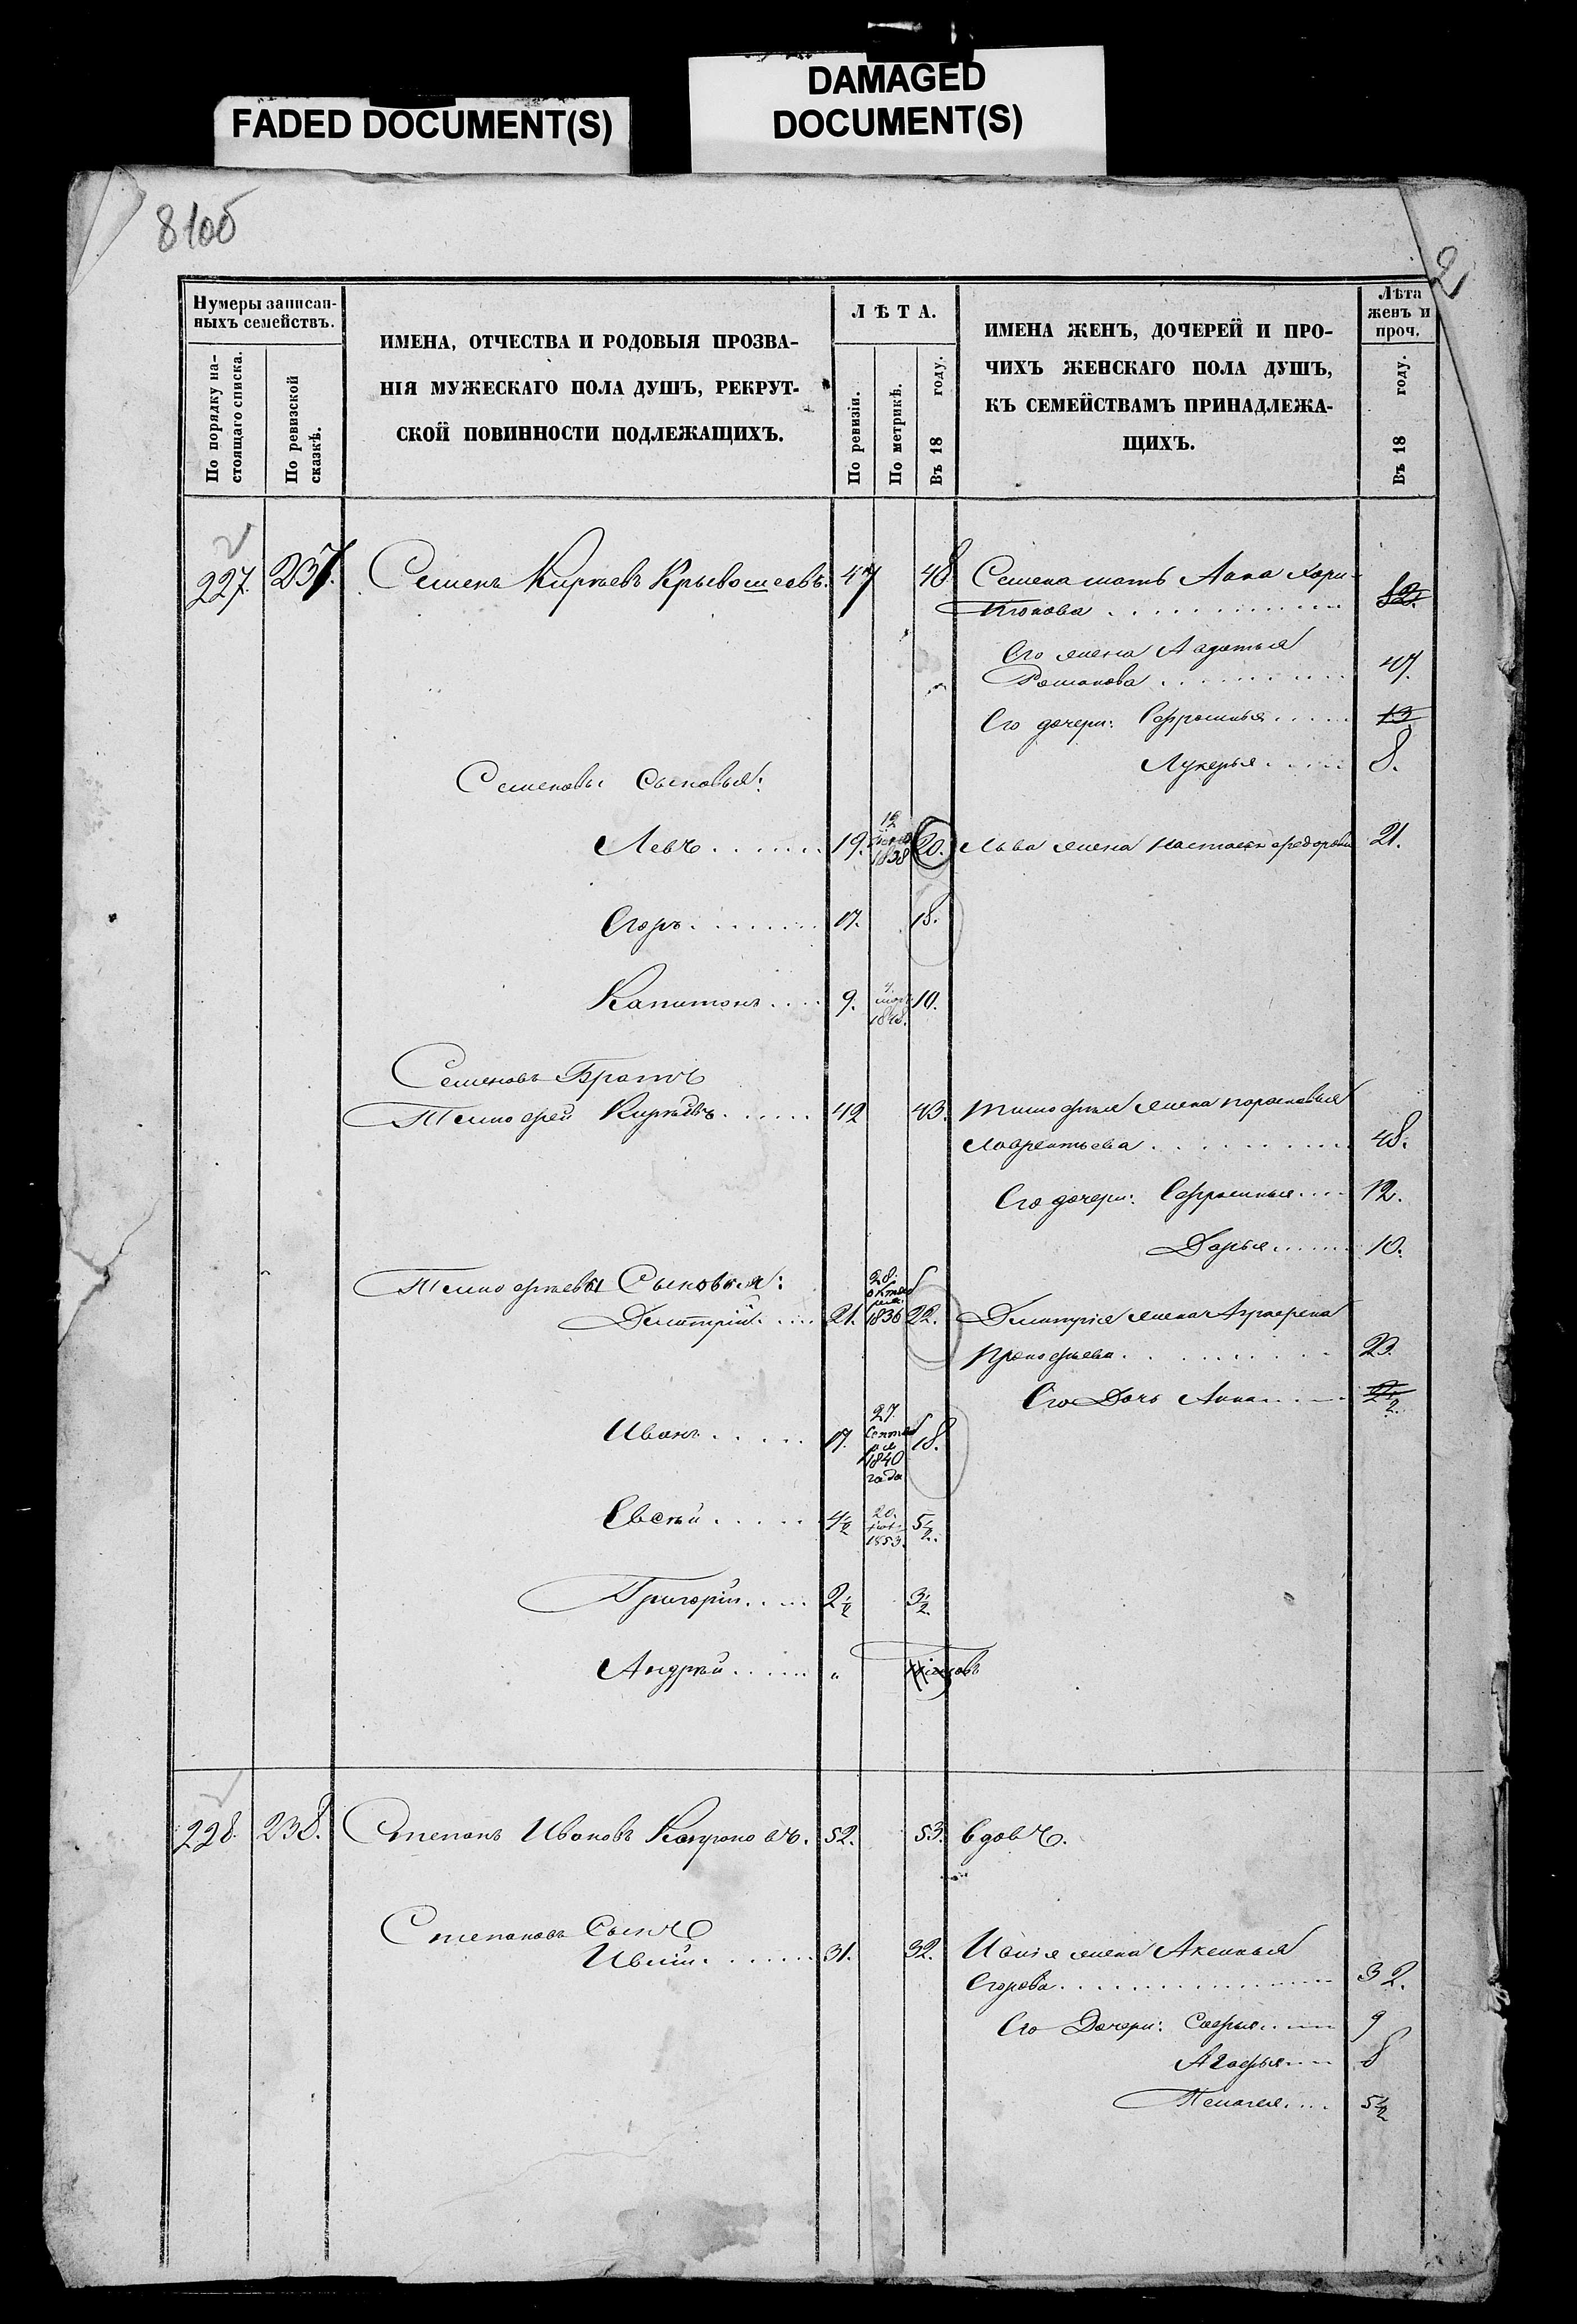 FADED DOCUMENT(S)
DAMAGED
DOCUMENT(S)
8100
2
Нумеры записан-
ныхъ семействъ.
По порядку на-
стоящаго списка.
По ревизской
сказкѣ.
ИМЕНА, ОТЧЕСТВА И РОДОВЫЯ ПРОЗВА-
НІЯ МУЖЕСКАГО ПОЛА ДУШЪ, РЕКРУТ-
СКОЙ ПОВИННОСТИ ПОДЛЕЖАЩИХЪ.
ЛѢТА.
По ревизіи.
По метрикѣ.
Въ 18 году.
ИМЕНА ЖЕНЪ, ДОЧЕРЕЙ И ПРО-
ЧИХЪ ЖЕНСКАГО ПОЛА ДУШЪ,
КЪ СЕМЕЙСТВАМЪ ПРИНАДЛЕЖА-
ЩИХЪ.
Лѣта
женъ и
проч.
Въ 18 году.
227. 237. Семенъ Кирѣевъ Кривошеевъ. 47 48 Семена мать Анна Хари-
тонова
Его жена Авдотья
Романова 47.
Его дочери: Ефросинья 13
Лукерья 8.
Семеновы Сыновья:
Левъ 19. 12 1838 20. Льва жена Настасья Федорова 21.
Егоръ 17. 18.
Капитонъ 9. 4. 10.
Семеновъ Братъ
Тимофей Кирѣевъ 42 43. Тимофея жена Парасковья
Лаврентьева 48.
Его дочери: Ефросинья 12.
Дарья 10.
Тимофеевы Сыновья:
Дмитрій 21. 28. октября 1836 22. Дмитрія жена Аграфена
Прокофьева 23.
Его Дочь Анна
Иванъ 17. 27. Сентября 1840 года 18.
Евсѣй 4½ 20. 1853. 5½
Григорій 2½ 3½
Андрей „
228. 238. Степанъ Ивановъ 52. 53. вдовъ.
Степановъ Сынъ
31. 32. жена Аксинья
Егорова 32.
Его Дочери: Софья 9
Агафья 8
Пелагея 5½